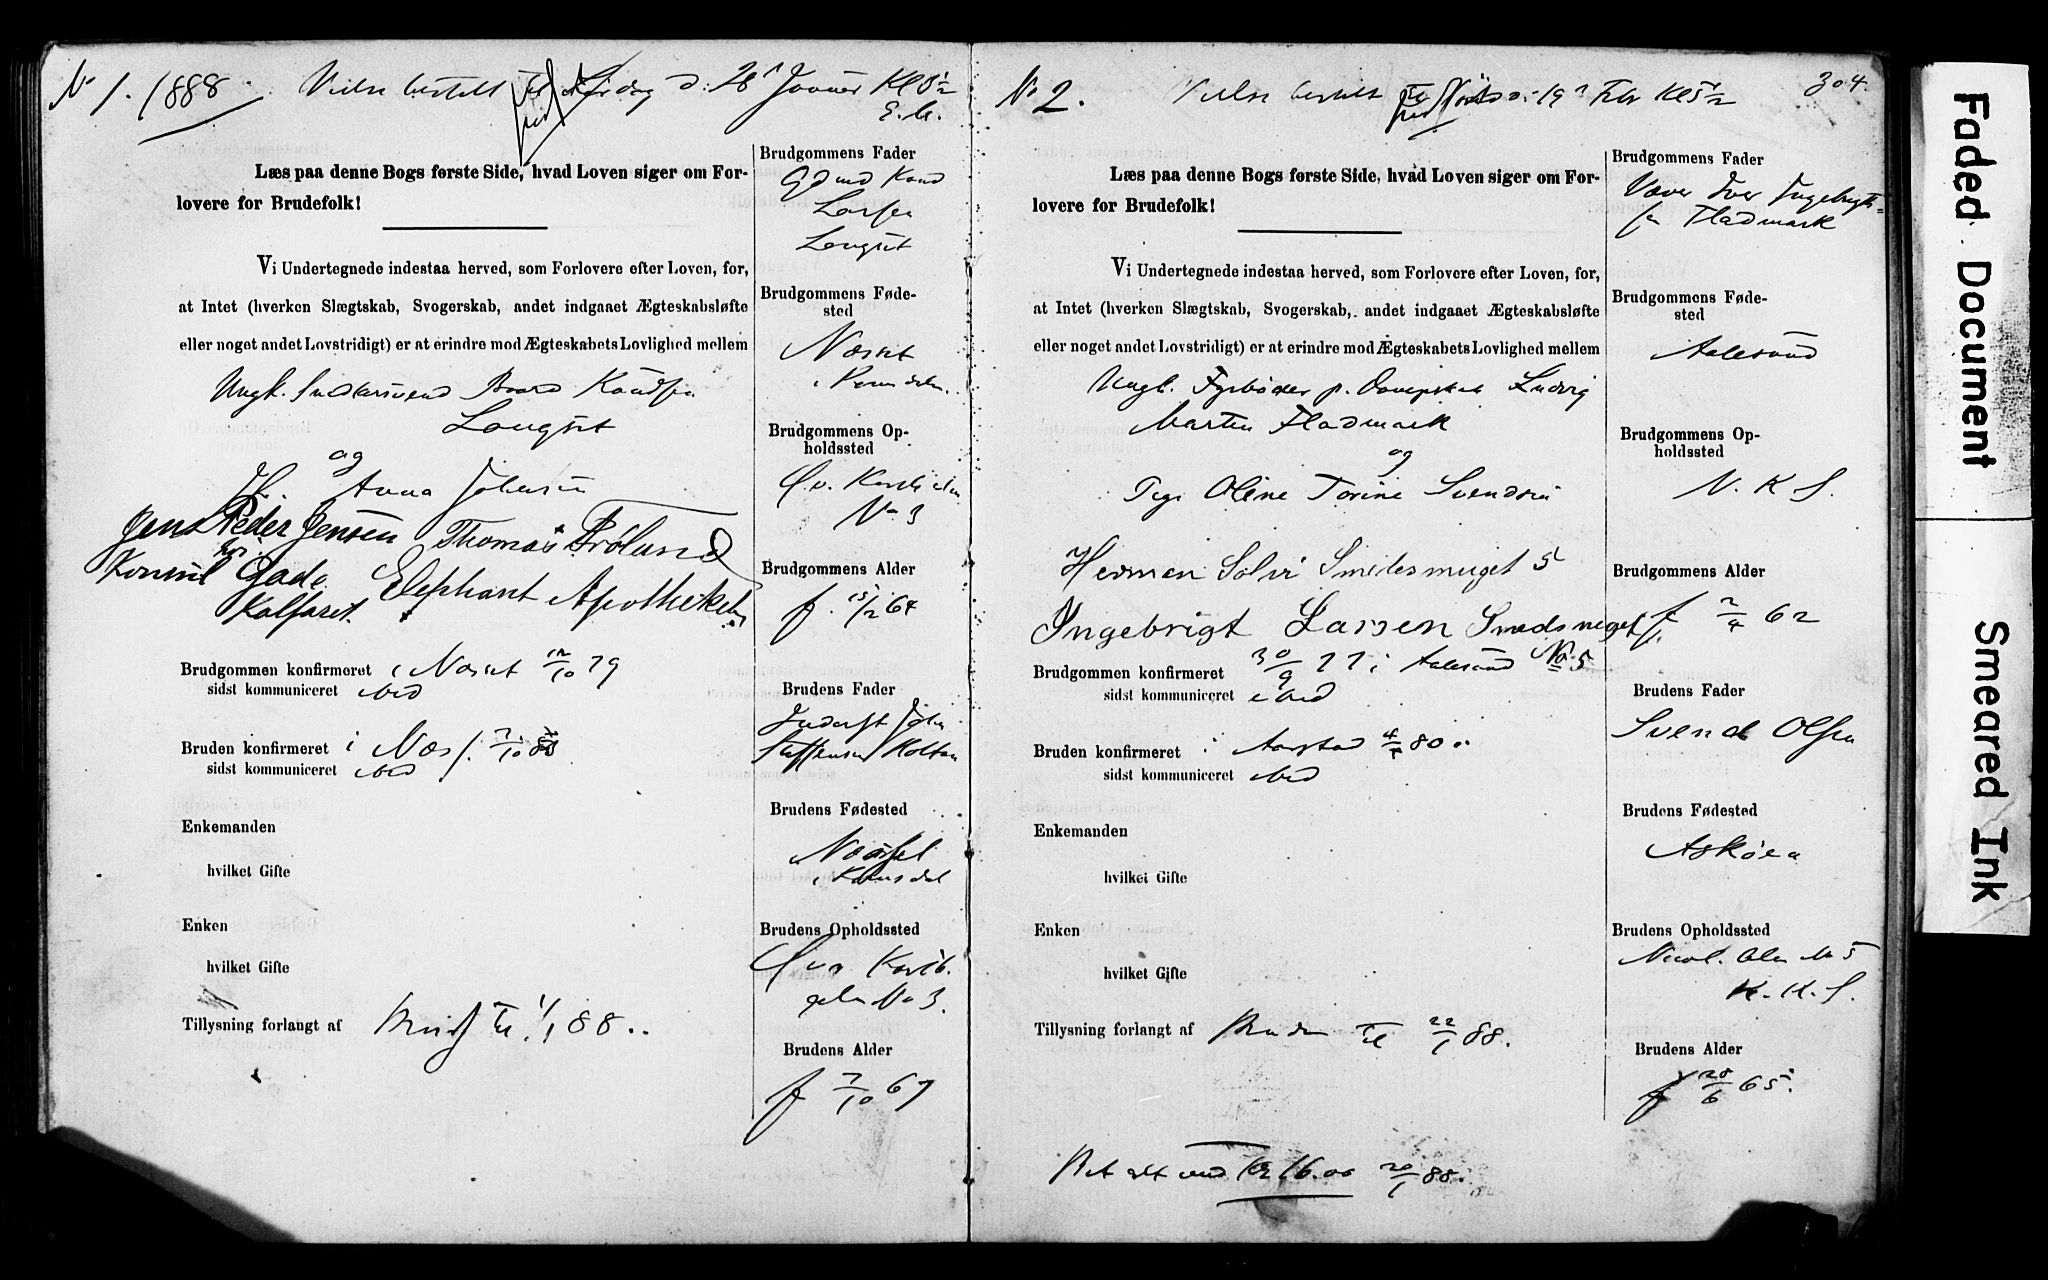 No 1. 1888. Vielse bestilt til Lørdag d: 28 Januar Kl 8 1/2
E. M.
Læs paa denne Bogs første Side, hvad Loven siger om For-
lovere for Brudefolk!
Vi Undertegnede indestaa herved, som Forlovere efter Loven, for,
at Intet (hverken Slægtskab, Svogerskab, andet indgaaet Ægteskabsløfte
eller noget andet Lovstridigt) er at erindre mod Ægteskabets Lovlighed mellem
Ungk. Baard Knudsen
Langset
og
Anna Johnsen
Jens Peder Jensen Thomas Frølund
hos
Konsul Gade Elephant Apotheket
Kalfaret.
Brudgommen konfirmeret i Næsset 12/10 79
sidst kommuniceret
Bruden konfirmeret i Næs
sidst kommuniceret
Enkemanden
hvilket Gifte
Enken
hvilket Gifte
Tillysning forlangt af Brudg til 1/1 88.
Brudgommens Fader
Gdmd Knud
Larsen
Langset
Brudgommens Føde-
sted
Næsset
i Romsdalen.
Brudgommens Op-
holdssted
No 3
Brudgommens Alder
f. 15/12 64
Brudens Fader
John
Steffensen
Brudens Fødested
Næsset
i Romsdal
Brudens Opholdssted
No 3.
Brudens Alder
f 7/10 67
304.
No 2. Vielse bestilt til d: 19 Febr Kl 5 1/2
Læs paa denne Bogs første Side, hvad Loven siger om For-
lovere for Brudefolk!
Vi Undertegnede indestaa herved, som Forlovere efter Loven, for,
at Intet (hverken Slægtskab, Svogerskab, andet indgaaet Ægteskabsløfte
eller noget andet Lovstridigt) er at erindre mod Ægteskabets Lovlighed mellem
Ungk. Fyrbøder p. Dampskib Ludvig
Martin Fladmark
og
Pige Oline Torine Svendsen
Herman Solvi Smedesmuget 5
Ingebrigt Larsen Smedsmuget
No 5
Brudgommen konfirmeret 30/9 77 i Aalesund
sidst kommuniceret
Bruden konfirmeret i Aarstad 80
sidst kommuniceret
Enkemanden
hvilket Gifte
Enken
hvilket Gifte
Tillysning forlangt af Bruden til 22/1 88.
Betalt med Kr 16.00 20/1 88.
Brudgommens Fader
Væver Iver Ingebrigt=
sen Fladmark
Brudgommens Føde-
sted
Aalesund
Brudgommens Op-
holdssted
N. K. S.
Brudgommens Alder
f. 2/4 62
Brudens Fader
Svend Olsen
Brudens Fødested
Askøen
Brudens Opholdssted
No 5
K. K. S.
Brudens Alder
f 28/6 65.
Faded Document
Smeared Ink